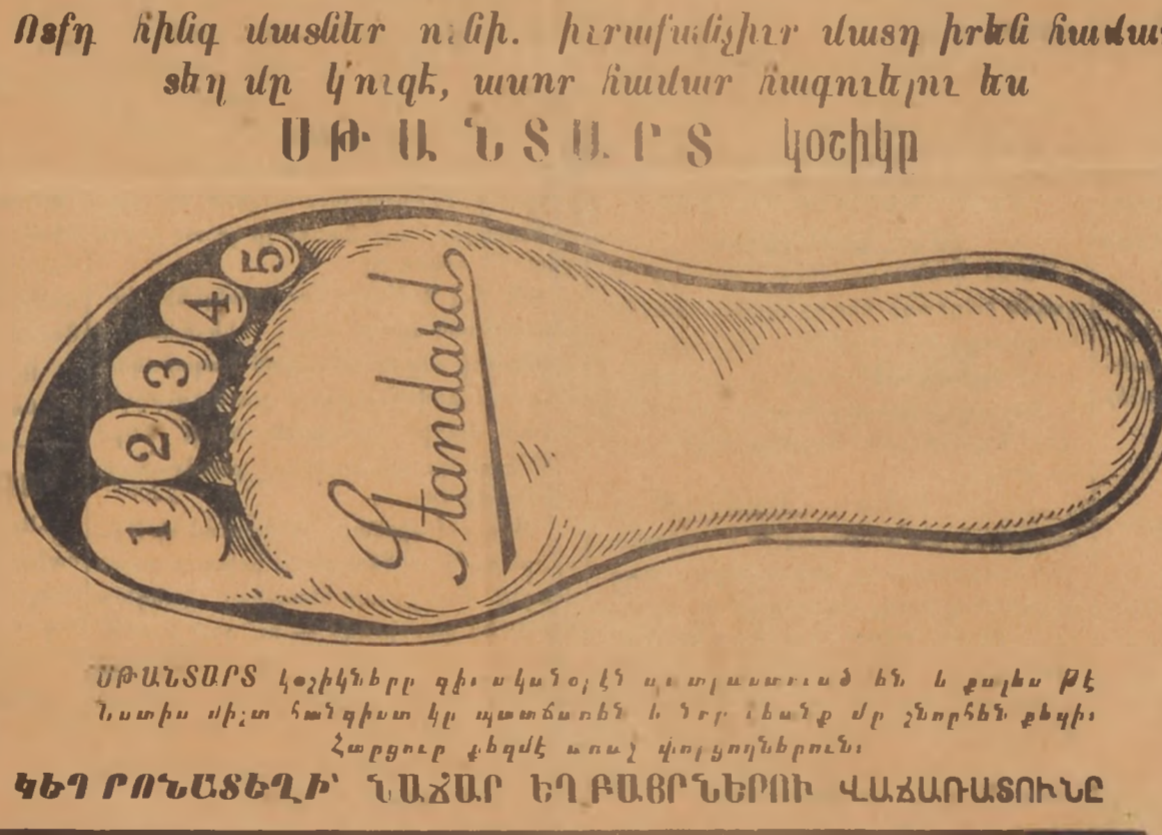 Ոտքդ հինգ մատներ ունի. իւրաքանչիւր մատդ իրեն համար
տեղ մը կ՚ուզէ, ասոր համար հագուելու ես
ՍԹԱՆՏԱՐՏ կօշիկը
5
4
3
2
1
Standard
ՍԹԱՆՏԱՐՏ կօշիկները գիտականօրէն պատրաստուած են և քալես թէ
նստիս միշտ հանգիստ կը պատճառեն և նոր կեանք մը շնորհեն քեզի։
Հարցուր քեզմէ առաջ փորձողներուն։
ԿԵԴՐՈՆԱՏԵՂԻ՝ ՆԱՃԱՐ ԵՂԲԱՅՐՆԵՐՈՒ ՎԱՃԱՌԱՏՈՒՆԸ